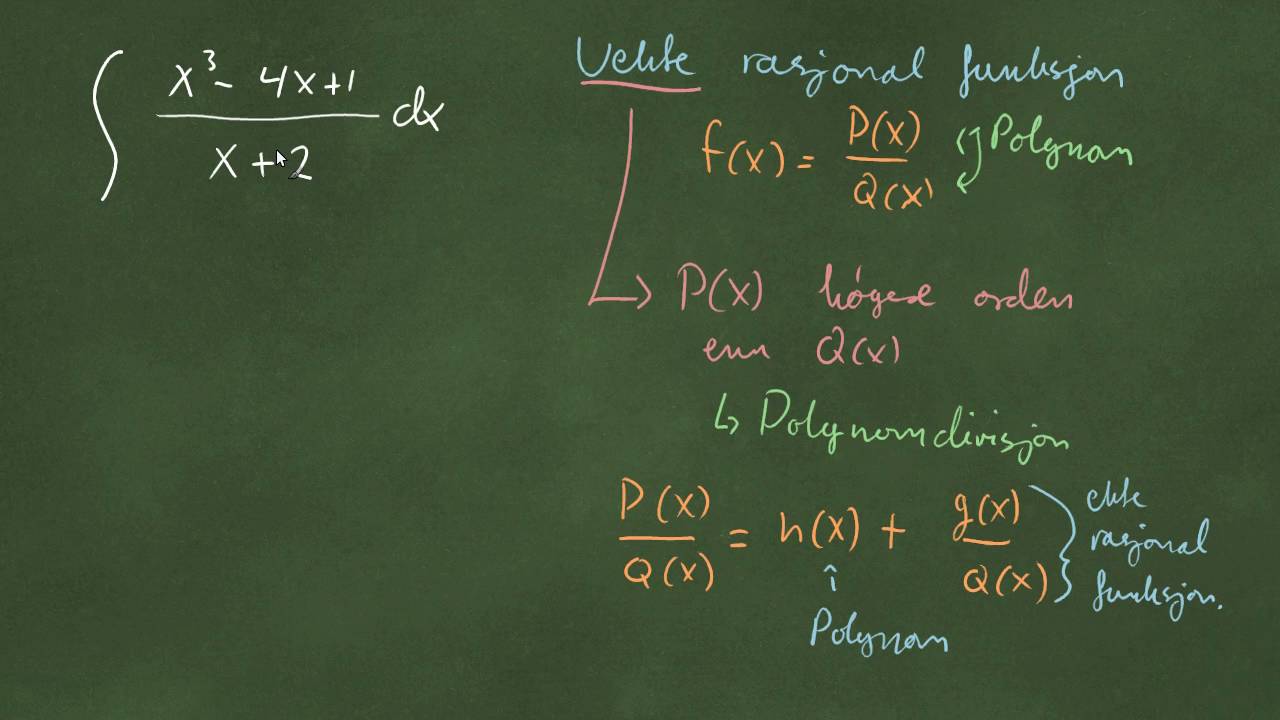 ∫ (x³ - 4x + 1)/(x + 2) dx
Uekte rasjonal funksjon
f(x) = P(x)/Q(x) Polynom
P(x) høgere orden
enn Q(x)
↳ Polynomdivisjon
P(x)/Q(x) = h(x) + g(x)/Q(x)
ekte
rasjonal
funksjon.
Polynom